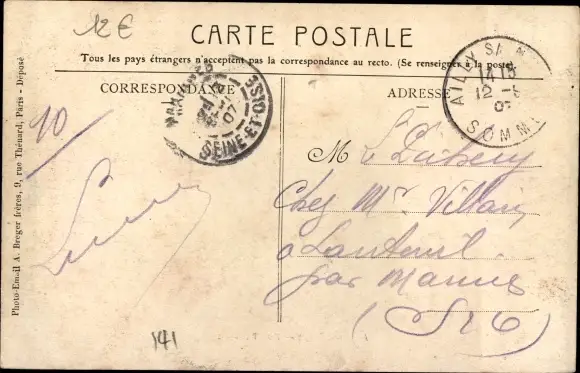 12 €
CARTE POSTALE
Tous les pays étrangers n'acceptent pas la correspondance au recto. (Se renseigner à la poste).
CORRESPONDANCE
ADRESSE
AILLY S
14 15
12 -
07
SOMME
07
SEINE-ET-OISE
10
M
Chez Mr. Villain
à Lanteuil
par
(S & O)
141
Photo-Email A. Breger frères, 9, rue Thénard, Paris - Déposé